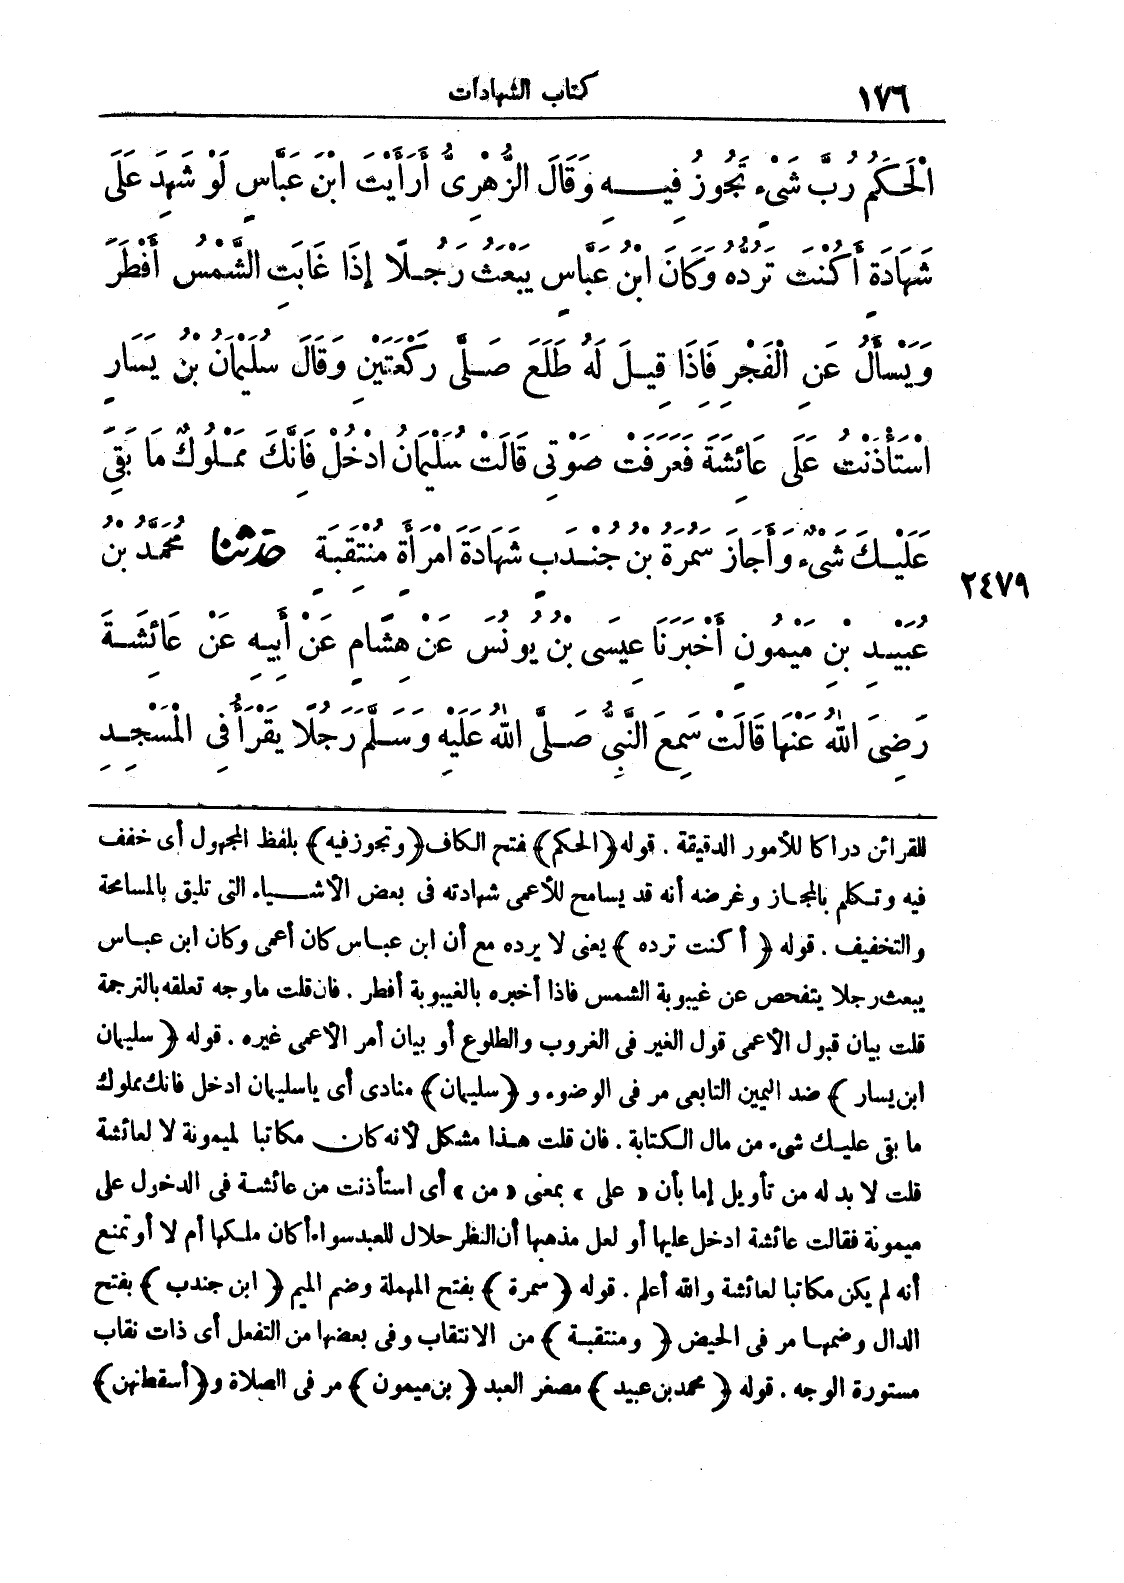 ١٧٦
كتاب الشهادات
الْحَكَمُ رُبَّ شَىْءٍ تَجُوزُ فِيهِ وَقَالَ الزُّهْرِىُّ أَرَأَيْتَ ابْنَ عَبَّاسٍ لَوْ شَهِدَ عَلَى
شَهَادَةٍ أَكُنْتَ تَرُدُّهُ وَكَانَ ابْنُ عَبَّاسٍ يَبْعَثُ رَجُلًا إِذَا غَابَتِ الشَّمْسُ أَفْطَرَ
وَيَسْأَلُ عَنِ الْفَجْرِ فَإِذَا قِيلَ لَهُ طَلَعَ صَلَّى رَكْعَتَيْنِ وَقَالَ سُلَيْمَانُ بْنُ يَسَارٍ
اسْتَأْذَنْتُ عَلَى عَائِشَةَ فَعَرَفَتْ صَوْتِى قَالَتْ سُلَيْمَانُ ادْخُلْ فَإِنَّكَ مَمْلُوكٌ مَا بَقِىَ
عَلَيْكَ شَىْءٌ وَأَجَازَ سَمُرَةُ بْنُ جُنْدَبٍ شَهَادَةَ امْرَأَةٍ مُنْتَقِبَةٍ حدثنا مُحَمَّدُ بْنُ
٢٤٧٩
عُبَيْدِ بْنِ مَيْمُونٍ أَخْبَرَنَا عِيسَى بْنُ يُونُسَ عَنْ هِشَامٍ عَنْ أَبِيهِ عَنْ عَائِشَةَ
رَضِىَ اللهُ عَنْهَا قَالَتْ سَمِعَ النَّبِىُّ صَلَّى اللهُ عَلَيْهِ وَسَلَّمَ رَجُلًا يَقْرَأُ فِى الْمَسْجِدِ
للقرائن دراكا للأمور الدقيقة . قوله ﴿الحكم﴾ فتح الكاف ﴿وتجوز فيه﴾ بلفظ المجهول أى خفف
فيه وتكلم بالمجاز وغرضه أنه قد يسامح للأعمى شهادته فى بعض الأشياء التى تليق بالمسامحة
والتخفيف . قوله ﴿أكنت ترده﴾ يعنى لا يرده مع أن ابن عباس كان أعمى وكان ابن عباس
يبعث رجلا يتفحص عن غيبوبة الشمس فاذا أخبره بالغيبوبة أفطر . فان قلت ما وجه تعلقه بالترجمة
قلت بيان قبول الأعمى قول الغير فى الغروب والطلوع أو بيان أمر الأعمى غيره . قوله ﴿سليمان
ابن يسار﴾ ضد اليمين التابعى مر فى الوضوء و ﴿سليمان﴾ منادى أى ياسليمان ادخل فانك مملوك
ما بقى عليك شىء من مال الكتابة . فان قلت هذا مشكل لأنه كان مكاتبا لميمونة لا لعائشة
قلت لا بد له من تأويل إما بأن «على» بمعنى «من» أى استأذنت من عائشة فى الدخول على
ميمونة فقالت عائشة ادخل عليها أو لعل مذهبها أن النظر حلال للعبد سواء أكان ملكها أم لا أو تمنع
أنه لم يكن مكاتبا لعائشة والله أعلم . قوله ﴿سمرة﴾ بفتح المهملة وضم الميم ﴿ابن جندب﴾ بفتح
الدال وضمها مر فى الحيض ﴿ومنتقبة﴾ من الانتقاب وفى بعضها من التفعل أى ذات نقاب
مستورة الوجه . قوله ﴿محمد بن عبيد﴾ مصغر العبد ﴿بن ميمون﴾ مر فى الصلاة و﴿أسقطتهن﴾